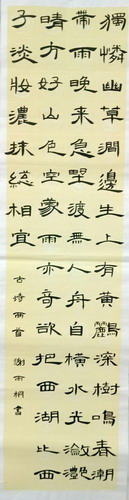 獨憐幽草澗邊生上有黃鸝深樹鳴春潮
帶雨晚來急野渡無人舟自橫水光瀲灩
晴方好山色空蒙雨亦奇欲把西湖比西
子淡妝濃抹緫相宜
古詩兩首 謝雨桐書